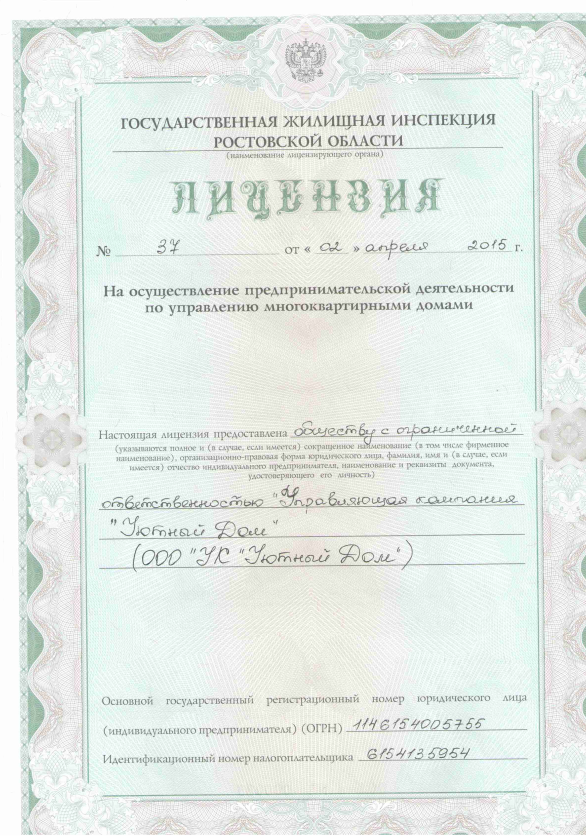 ГОСУДАРСТВЕННАЯ ЖИЛИЩНАЯ ИНСПЕКЦИЯ
РОСТОВСКОЙ ОБЛАСТИ
(наименование лицензирующего органа)
ЛИЦЕНЗИЯ
№ 37 от « 02 » апреля 2015 г.
На осуществление предпринимательской деятельности
по управлению многоквартирными домами
Настоящая лицензия предоставлена обществу с ограниченной
(указываются полное и (в случае, если имеется) сокращенное наименование (в том числе фирменное
наименование), организационно-правовая форма юридического лица, фамилия, имя и (в случае, если
имеется) отчество индивидуального предпринимателя, наименование и реквизиты документа,
удостоверяющего его личность)
ответственностью "Управляющая компания
"Уютный Дом"
(ООО "УК "Уютный Дом")
Основной государственный регистрационный номер юридического лица
(индивидуального предпринимателя) (ОГРН) 1146154005755
Идентификационный номер налогоплательщика 6154135954